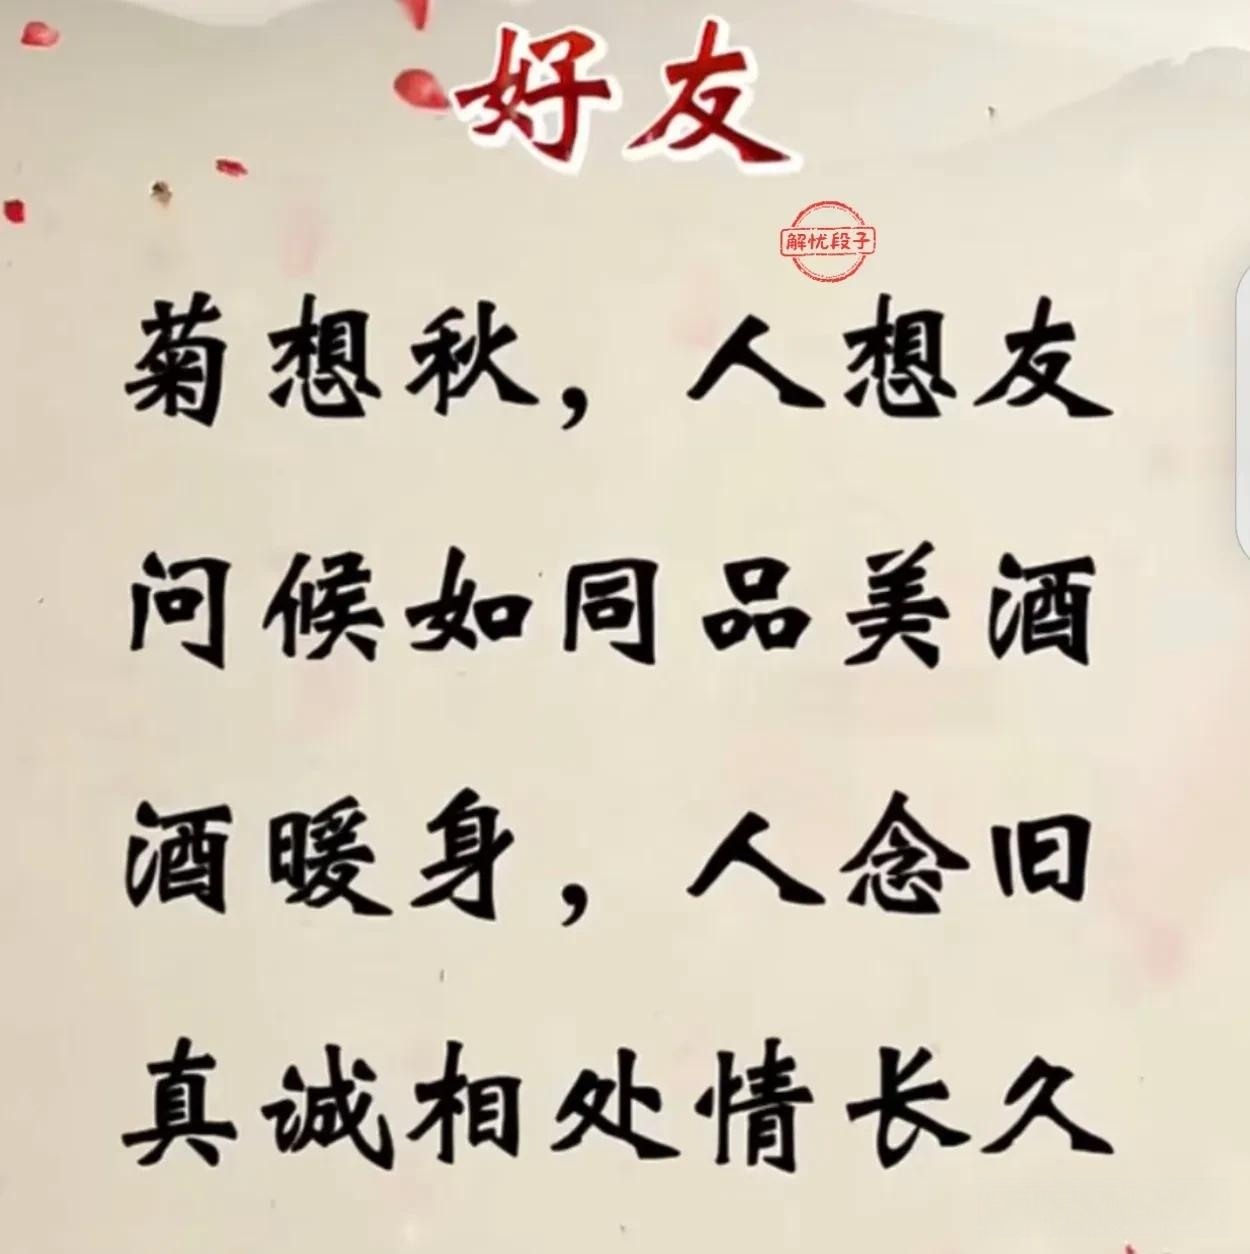 好友
解忧段子
菊想秋，人想友
问候如同品美酒
酒暖身，人念旧
真诚相处情长久